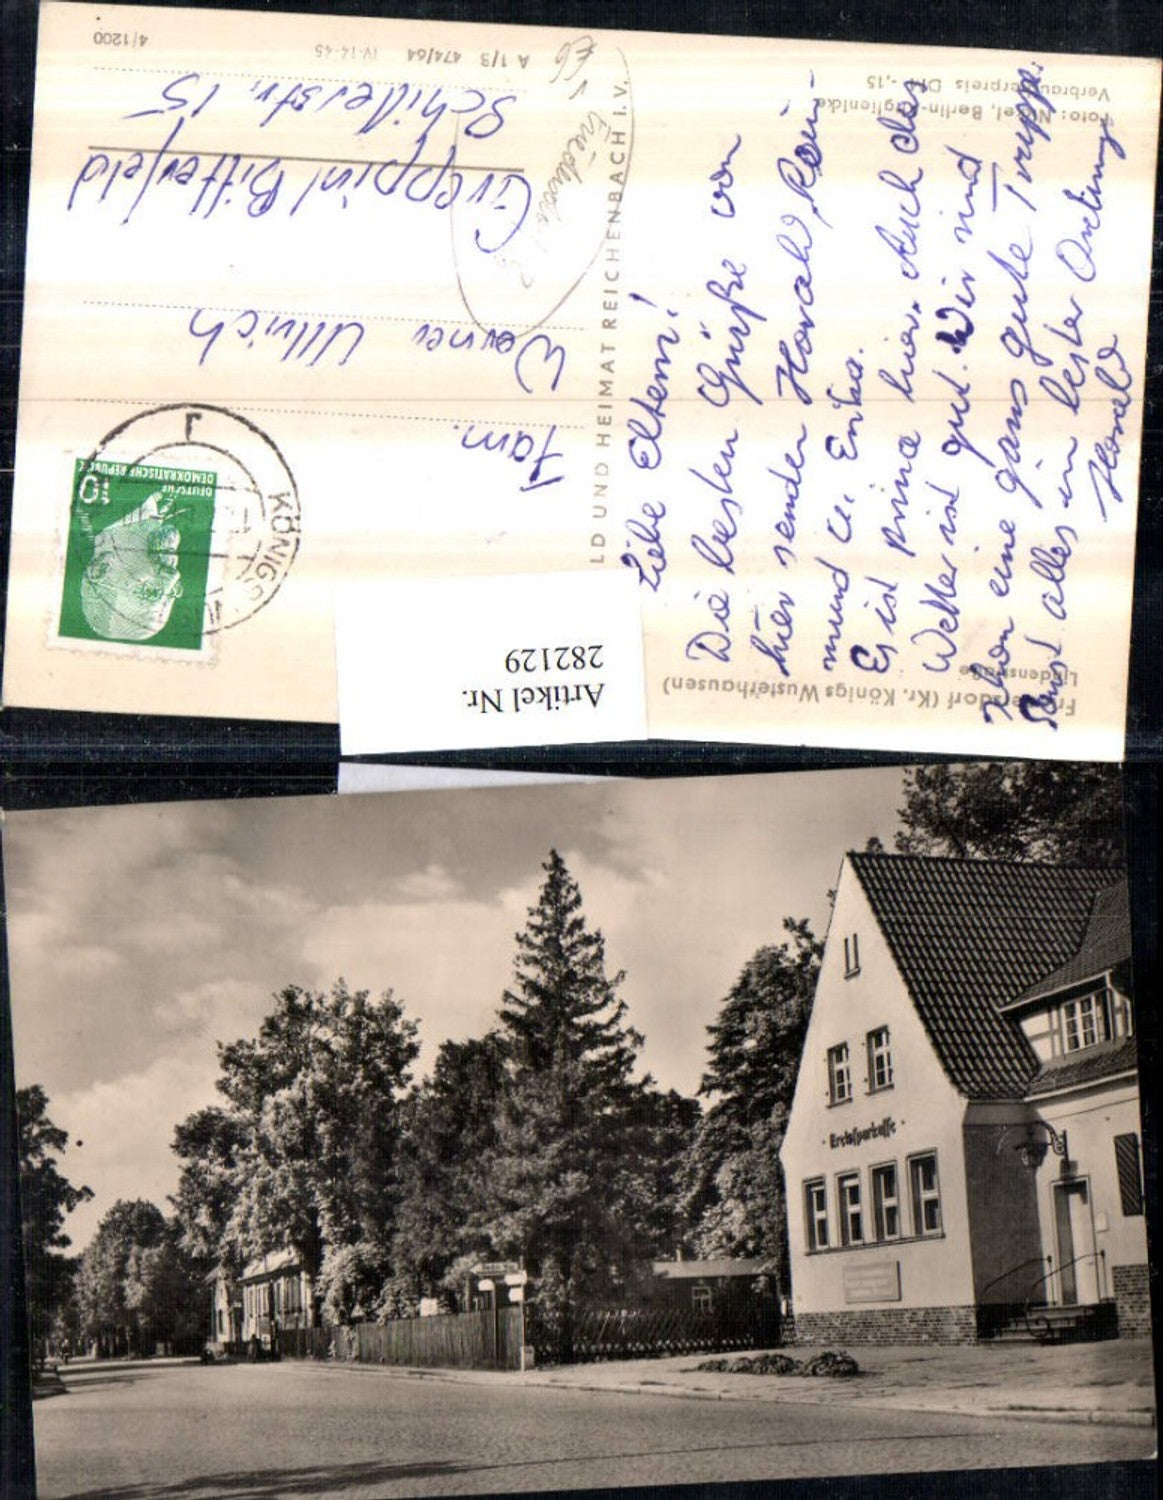 Friedersdorf (Kr. Königs Wusterhausen)
Lindenstraße
Liebe Eltern!
Die besten Grüße von
hier senden Harald,
mund u. Erika.
Es ist prima hier. Auch das
Wetter ist gut. Wir sind
schon eine ganz gute Truppe.
Sonst alles in bester Ordnung
Harald
Foto: Nickel, Berlin-Altglienicke
Verbraucherpreis DM -,15
LD UND HEIMAT REICHENBACH I. V.
A 1/3 474/64 IV-14-45 4/1200
Fam.
Werner Ullrich
Greppin/Bitterfeld
Schillerstr. 15
DEUTSCHE
DEMOKRATISCHE REPUBLIK
10
KÖNIGS
Artikel Nr.
282129
Kreissparkasse